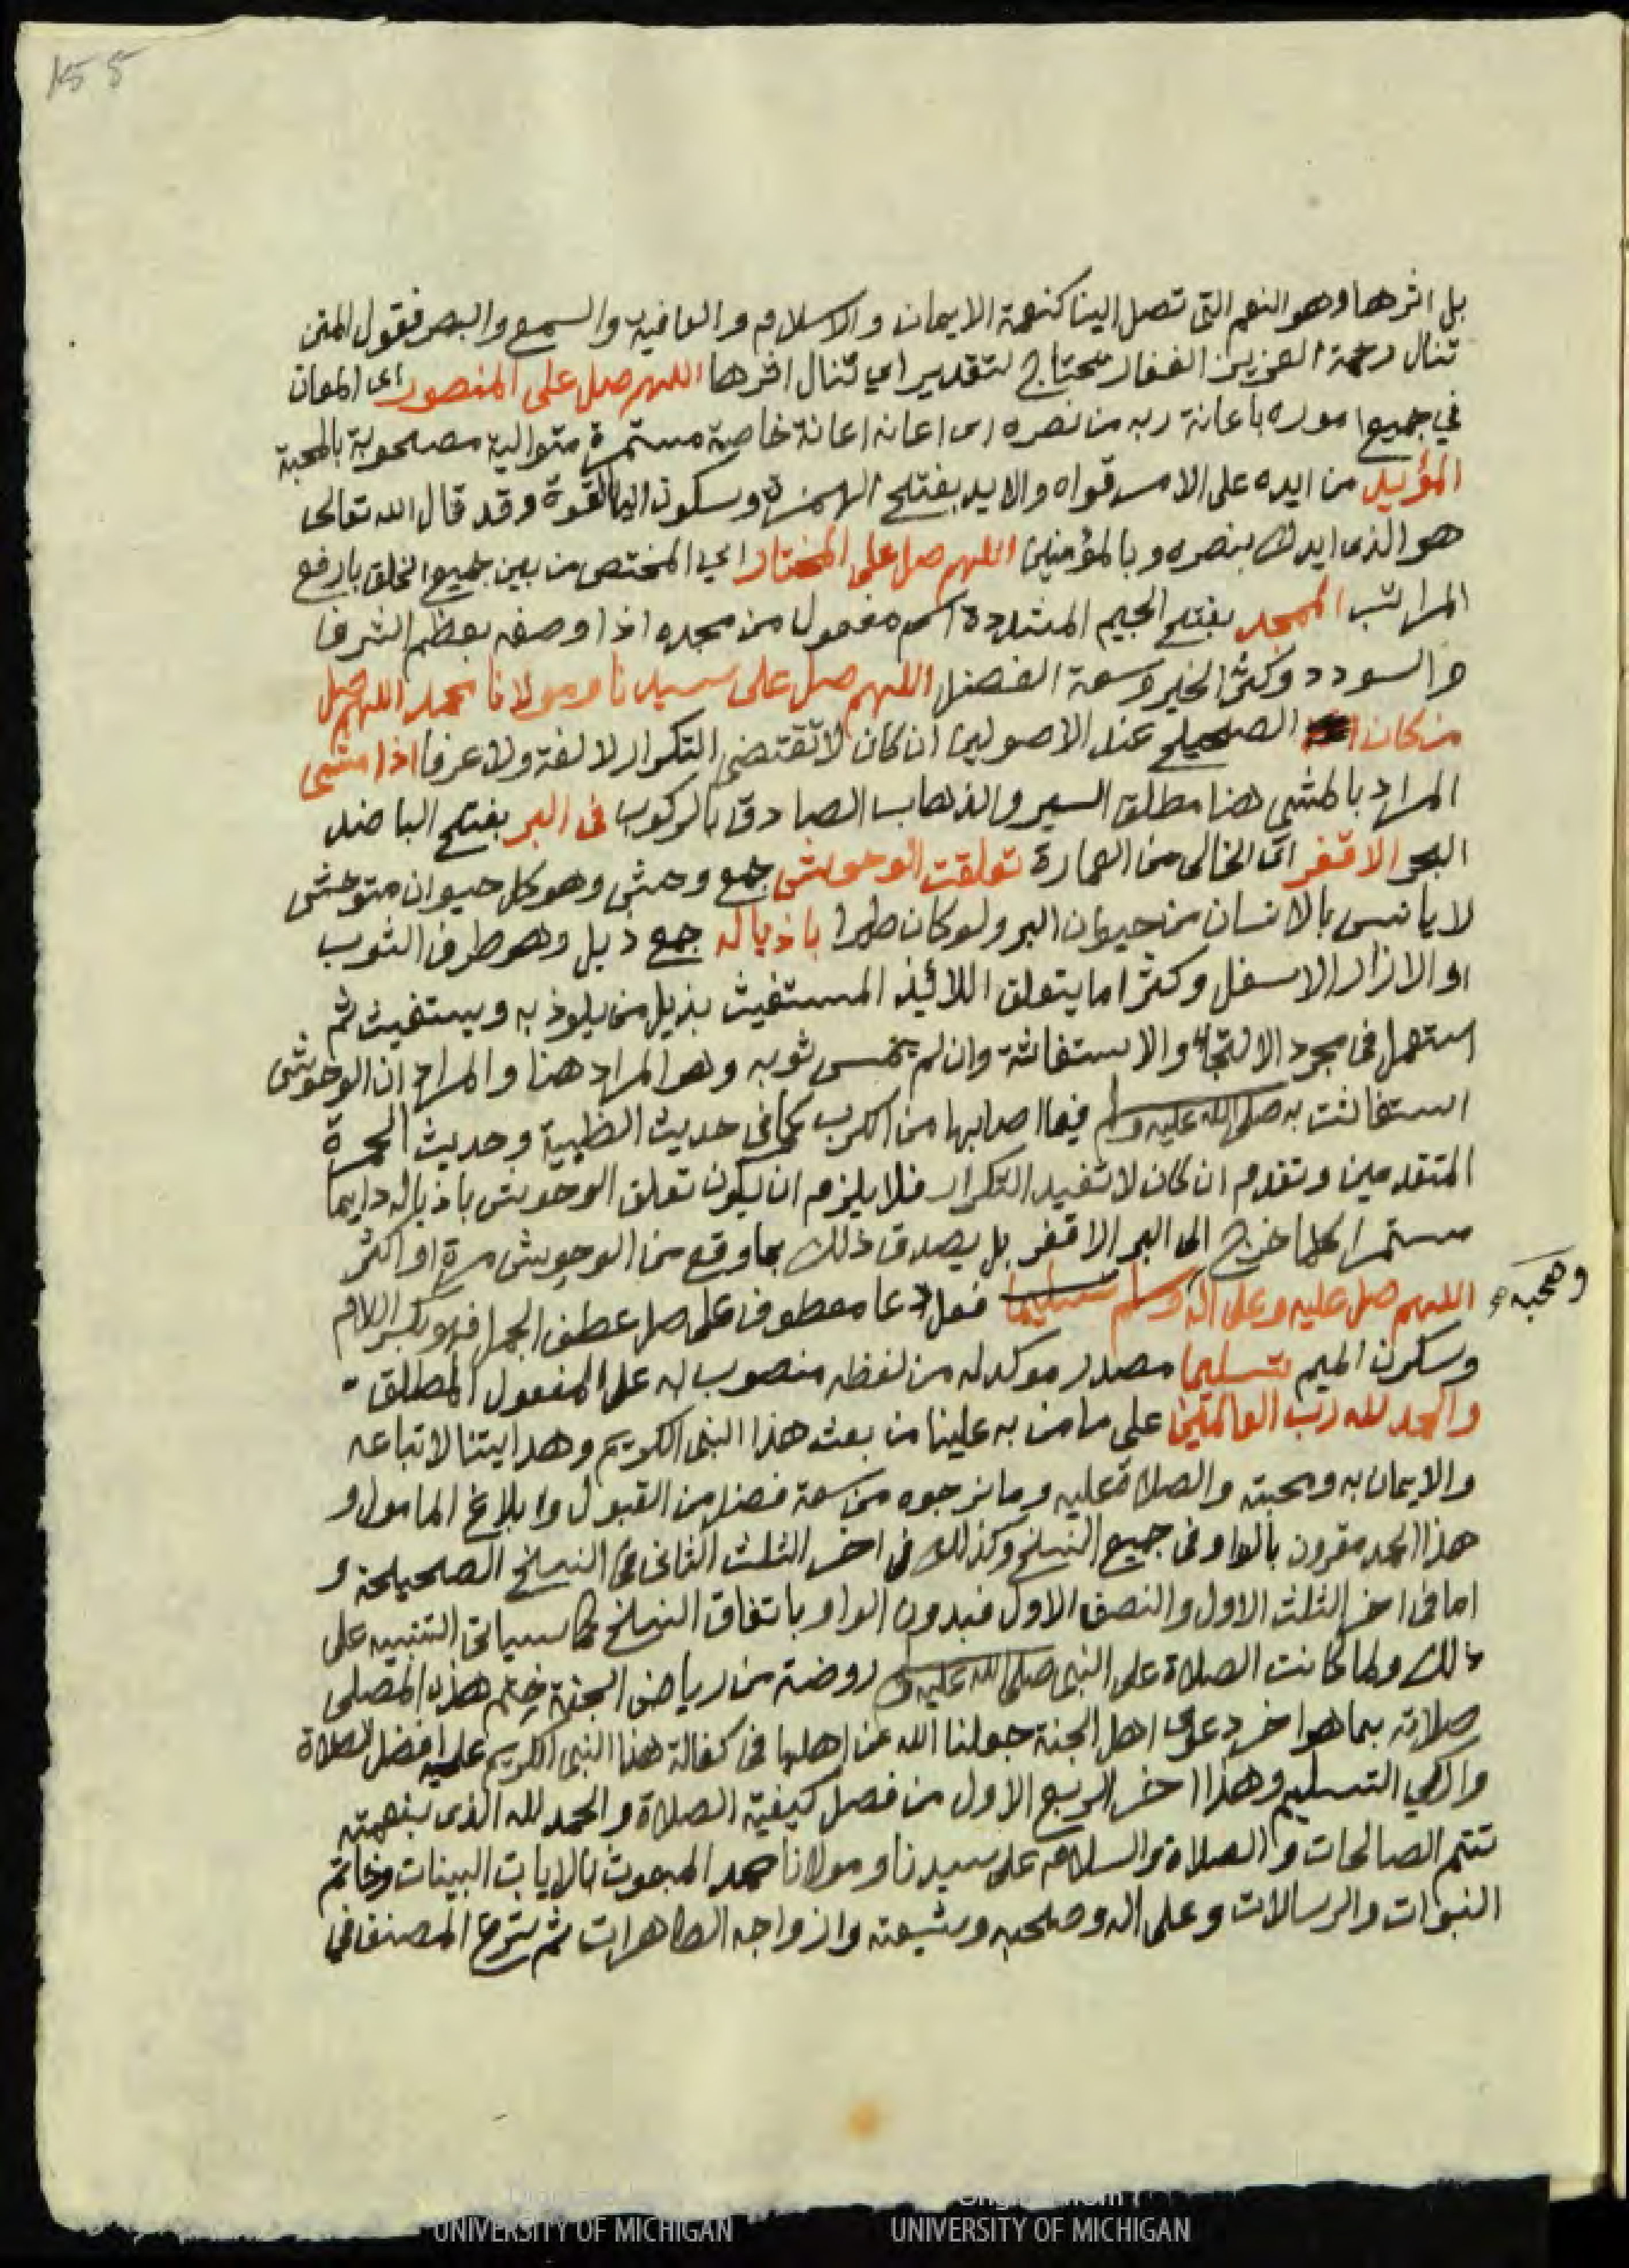 155
بل اثرها وهو النعم التى تصل الينا كنعمة الايمان والاسلام والعافية والسمع والبصر فقول المتن
تنال رحمة العزيز الغفار محتاج لتقدير اي تنال اثرها اللهم صل على المنصور اى المعان
في جميع اموره باعانة ربه من نصره اى اعانه اعانة خاصة مستمرة متوالية مصحوبة بالمحبة
المؤيد من ايده على الامر قواه والايد بفتح الهمزة وسكون اليا القوة وقد قال الله تعالى
هو الذى ايدك بنصره وبالمؤمنين اللهم صل على المختار اي المختص من بين جميع الخلق بارفع
المراتب الممجد بفتح الجيم المشددة اسم مفعول من مجده اذا وصفه بعظم الشرف
والسودد وكثرة الخير وسعة الفضل اللهم صل على سيدنا ومولانا محمد اللهم صل
من كان الصحيح عند الاصوليين ان كان لا تقتضى التكرار لا لغة ولا عرفا اذا مشى
المراد بالمشى هنا مطلق السير والذهاب الصادق بالركوب فى البر بفتح البا ضد
البحر الاقفر اى الخالى من العمارة تعلقت الوحوش جمع وحش وهو كل حيوان متوحش
لا يانس بالانسان من حيوان البر ولو كان طيرا باذياله جمع ذيل وهو طرف الثوب
او الازار الاسفل وكثيرا ما يتعلق اللائذ المستغيث بذيل من يلوذ به ويستغيث ثم
استعمل فى مجرد الالتجاء والاستغاثة وان لم يمس ثوبه وهو المراد هنا والمراد ان الوحوش
استغاثت به صلى الله عليه وسلم فيما اصابها من الكرب كما فى حديث الظبية وحديث الحمرة
المتقدمين وتقدم ان كان لا تفيد التكرار فلا يلزم ان يكون تعلق الوحوش باذياله دايما
مستمرا كلما خرج الى البر الاقفر بل يصدق ذلك بما وقع من الوحوش مرة او اكثر
اللهم صل عليه وعلى اله وسلم تسليما فعل دعا معطوف على صل عطف الجمل فهو بكسر اللام
وصحبه
وسكون الميم تسليما مصدر موكد له من لفظه منصوب به على المفعول المطلق
والحمد لله رب العالمين على ما من به علينا من بعث هذا النبى الكريم وهدايتنا لاتباعه
والايمان به ومحبته والصلاة عليه وما نرجوه من سعة فضله من القبول وابلاغ المامول و
هذا الحمد مقرون بالواو فى جميع النسخ وكذلك فى اخر الثلث الثانى فى النسخ الصحيحة و
اما فى اخر الثلث الاول والنصف الاول فبدون الواو باتفاق النسخ كما سياتى التنبيه على
ذلك ولما كانت الصلاة على النبى صلى الله عليه وسلم روضة من رياض الجنة ختم هذه المصلى
صلاته بما هو اخر دعوى اهل الجنة جعلنا الله من اهلها فى كفالة هذا النبى الكريم عليه افضل الصلاة
وازكي التسليم وهذا اخر الربع الاول من فصل كيفية الصلاة والحمد لله الذى بنعمته
تتم الصالحات والصلاة والسلام على سيدنا ومولانا محمد المبعوث بالايات البينات وخاتم
النبوات والرسالات وعلى اله وصحبه وشيعته وازواجه الطاهرات ثم شرع المصنف فى
UNIVERSITY OF MICHIGAN
UNIVERSITY OF MICHIGAN